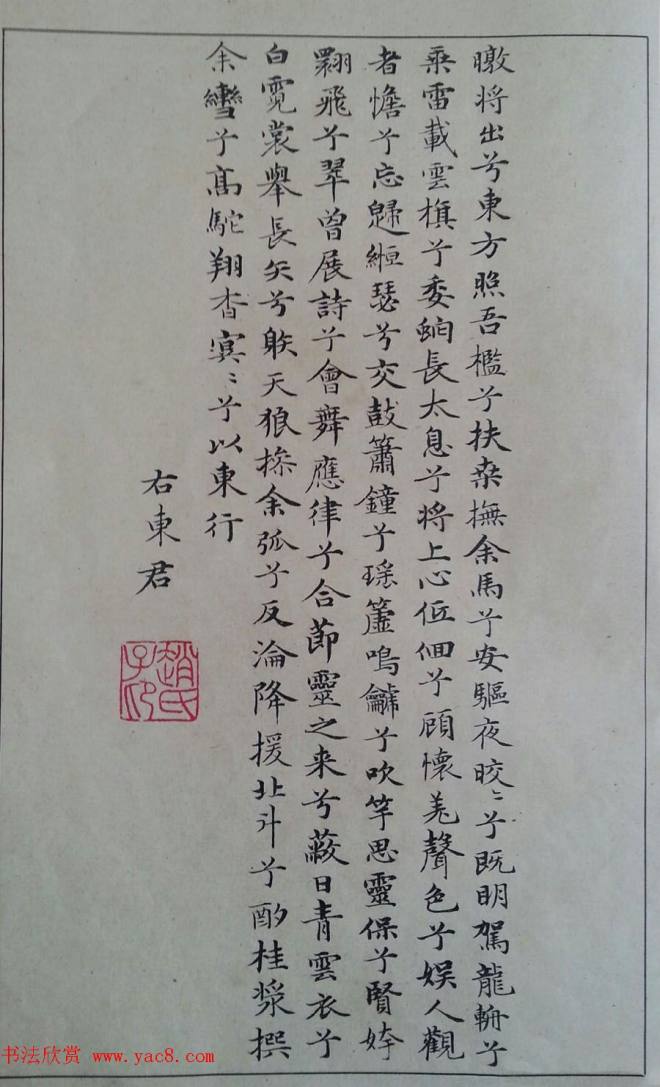 暾将出兮東方照吾檻兮扶桒撫余馬兮安驅夜晈〻兮既明駕龍輈兮
乗雷載雲旗兮委蛇長太息兮将上心低佪兮顧懷羌聲色兮娱人觀
者憺兮忘歸緪瑟兮交鼓簫鐘兮瑶簴鳴龥兮吹竽思靈保兮賢姱
翾飛兮翠曾展詩兮會舞應律兮合節靈之来兮蔽日青雲衣兮
白霓裳舉長矢兮䠶天狼操余弧兮反淪降援北斗兮酌桂漿撰
余轡兮高駝翔杳冥〻兮以東行
右東君
趙氏子印
书法欣赏 www.yac8.com